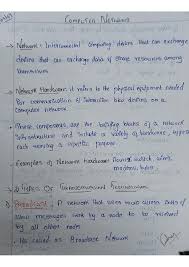 Computer Network
→ Network: Interconnected computing device that can exchange
device that can exchange data & share resources among
→ Network Hardware: it refers to the physical equipment needed
for communication & interaction b/w devices on a
computer network.
→ These components are the building blocks of a network
infrastructure and include a variety of hardware, each
each serving a specific purpose
→ Examples of Network hardware Router, switch, wires,
modem, hubs.
→ Types of Transmission
① Broadcast: A Network that when nodes across
show messages sent by a node to be received
by all other node
→ Is called as Broadcast Network